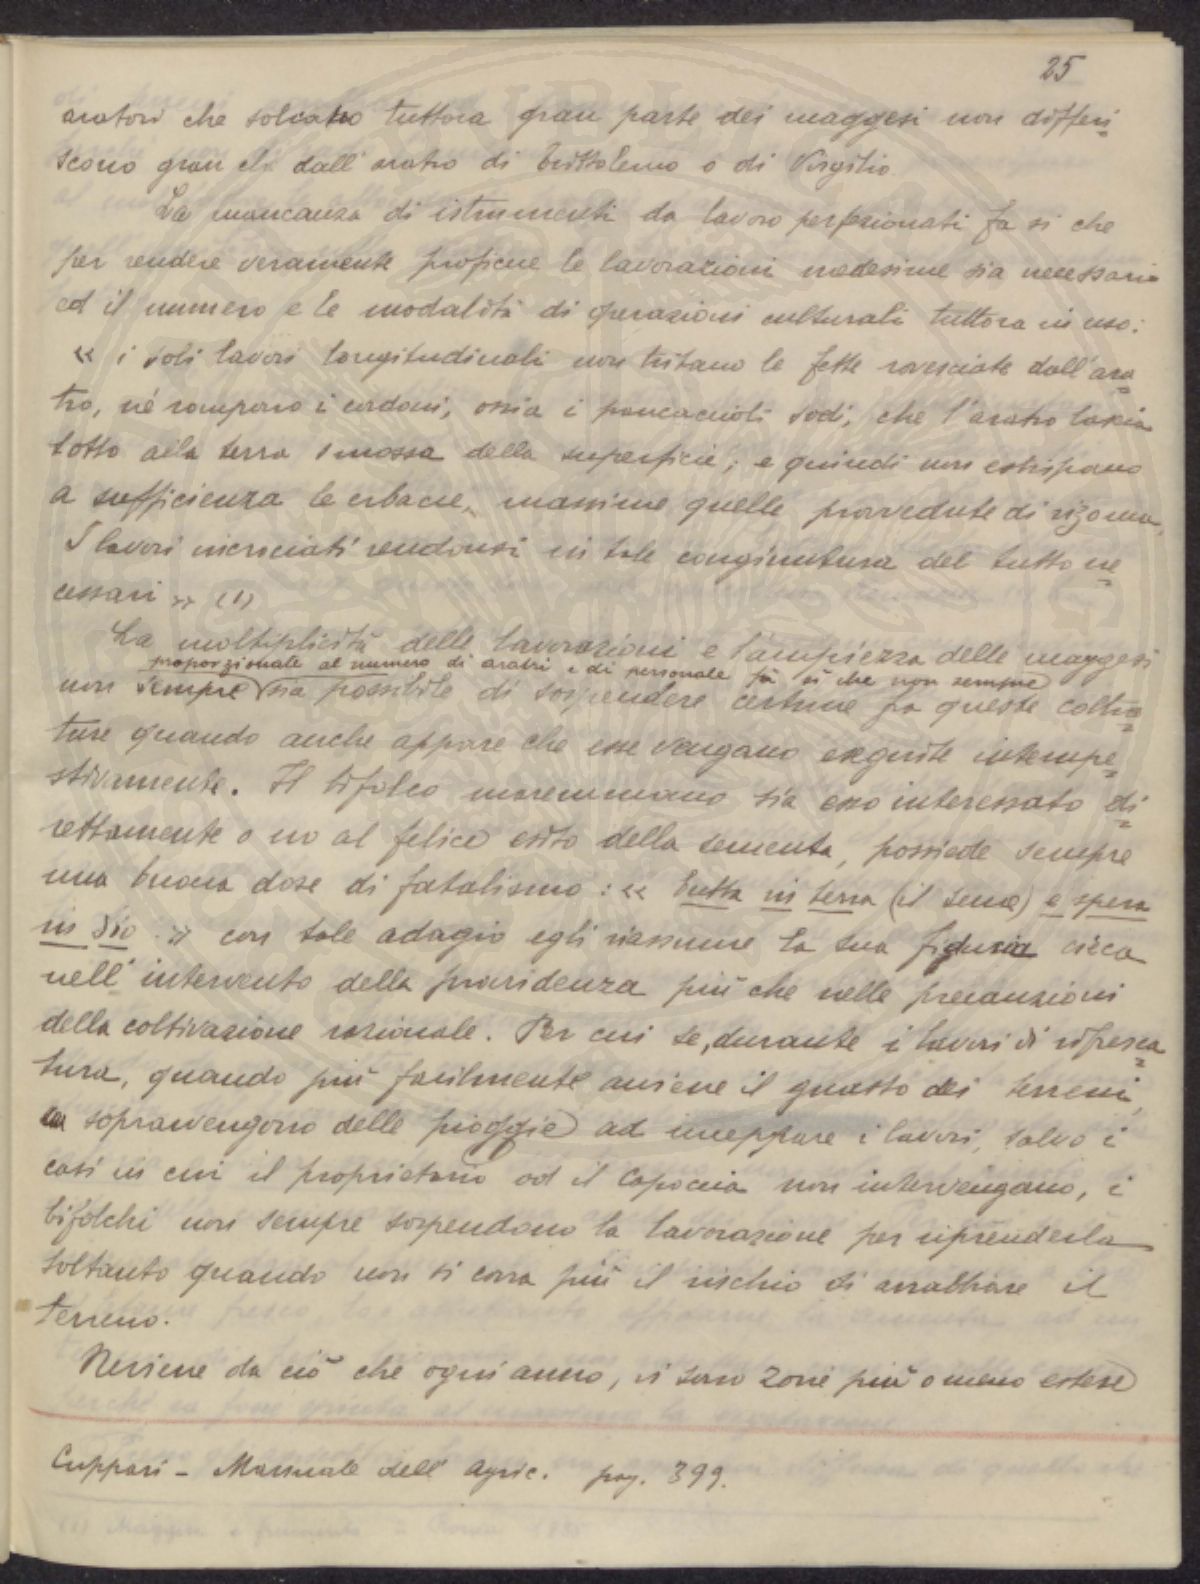 25
aratori che solcano tuttora gran parte dei maggesi non differi-
scono gran ch. dall'aratro di Trittolemo o di Virgilio
La mancanza di istrumenti da lavoro perfezionati fa si che
per rendere veramente proficue le lavorazioni medesime sia necessario
ed il numero e le modalità di operazioni culturali tuttora in uso:
« i soli lavori longitudinali non tritano le fette rovesciate dall'ara-
tro, né rompono i cordoni, ossia i pancaccioli sodi, che l'aratro lascia
sotto alla terra smossa della superficie; e quindi non estirpano
a sufficienza le erbacce, massime quelle provvedute di rizoma.
I lavori incrociati rendonsi in tale congiuntura del tutto ne-
cessari » (1)
La moltiplicità delle lavorazioni e l'ampiezza delle maggesi
proporzionate al numero di aratri e di personale fa si che non sempre
non sempre sia possibile di sospendere certune fra queste coltu-
ture quando anche appare che esse vengano eseguite intempe-
stivamente. Il bifolco maremmano sia esso interessato di-
rettamente o no al felice esito della sementa, possiede sempre
una buona dose di fatalismo: « butta in terra (il seme) e spera
in Dio » con tale adagio egli riassume la sua fiducia cieca
nell'intervento della provvidenza più che nelle precauzioni
della coltivazione razionale. Per cui se, durante i lavori di rifresca-
tura, quando più facilmente avviene il guasto dei terreni,
sopravvengono delle pioggie ad inceppare i lavori, salvo i
casi in cui il proprietario od il Capoccia non intervengano, i
bifolchi non sempre sospendono la lavorazione per riprenderla
soltanto quando non si corra più il rischio di arrabbiare il
terreno.
Neviene da ciò che ogni anno, vi sono zone più o meno estese
Cuppari - Manuale dell'Agric. pag. 399.